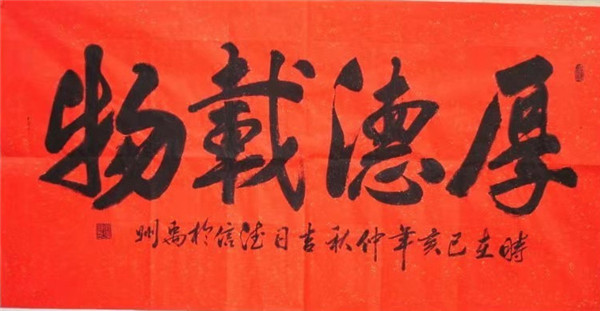 厚德載物
時在己亥年仲秋吉日德信於禹州